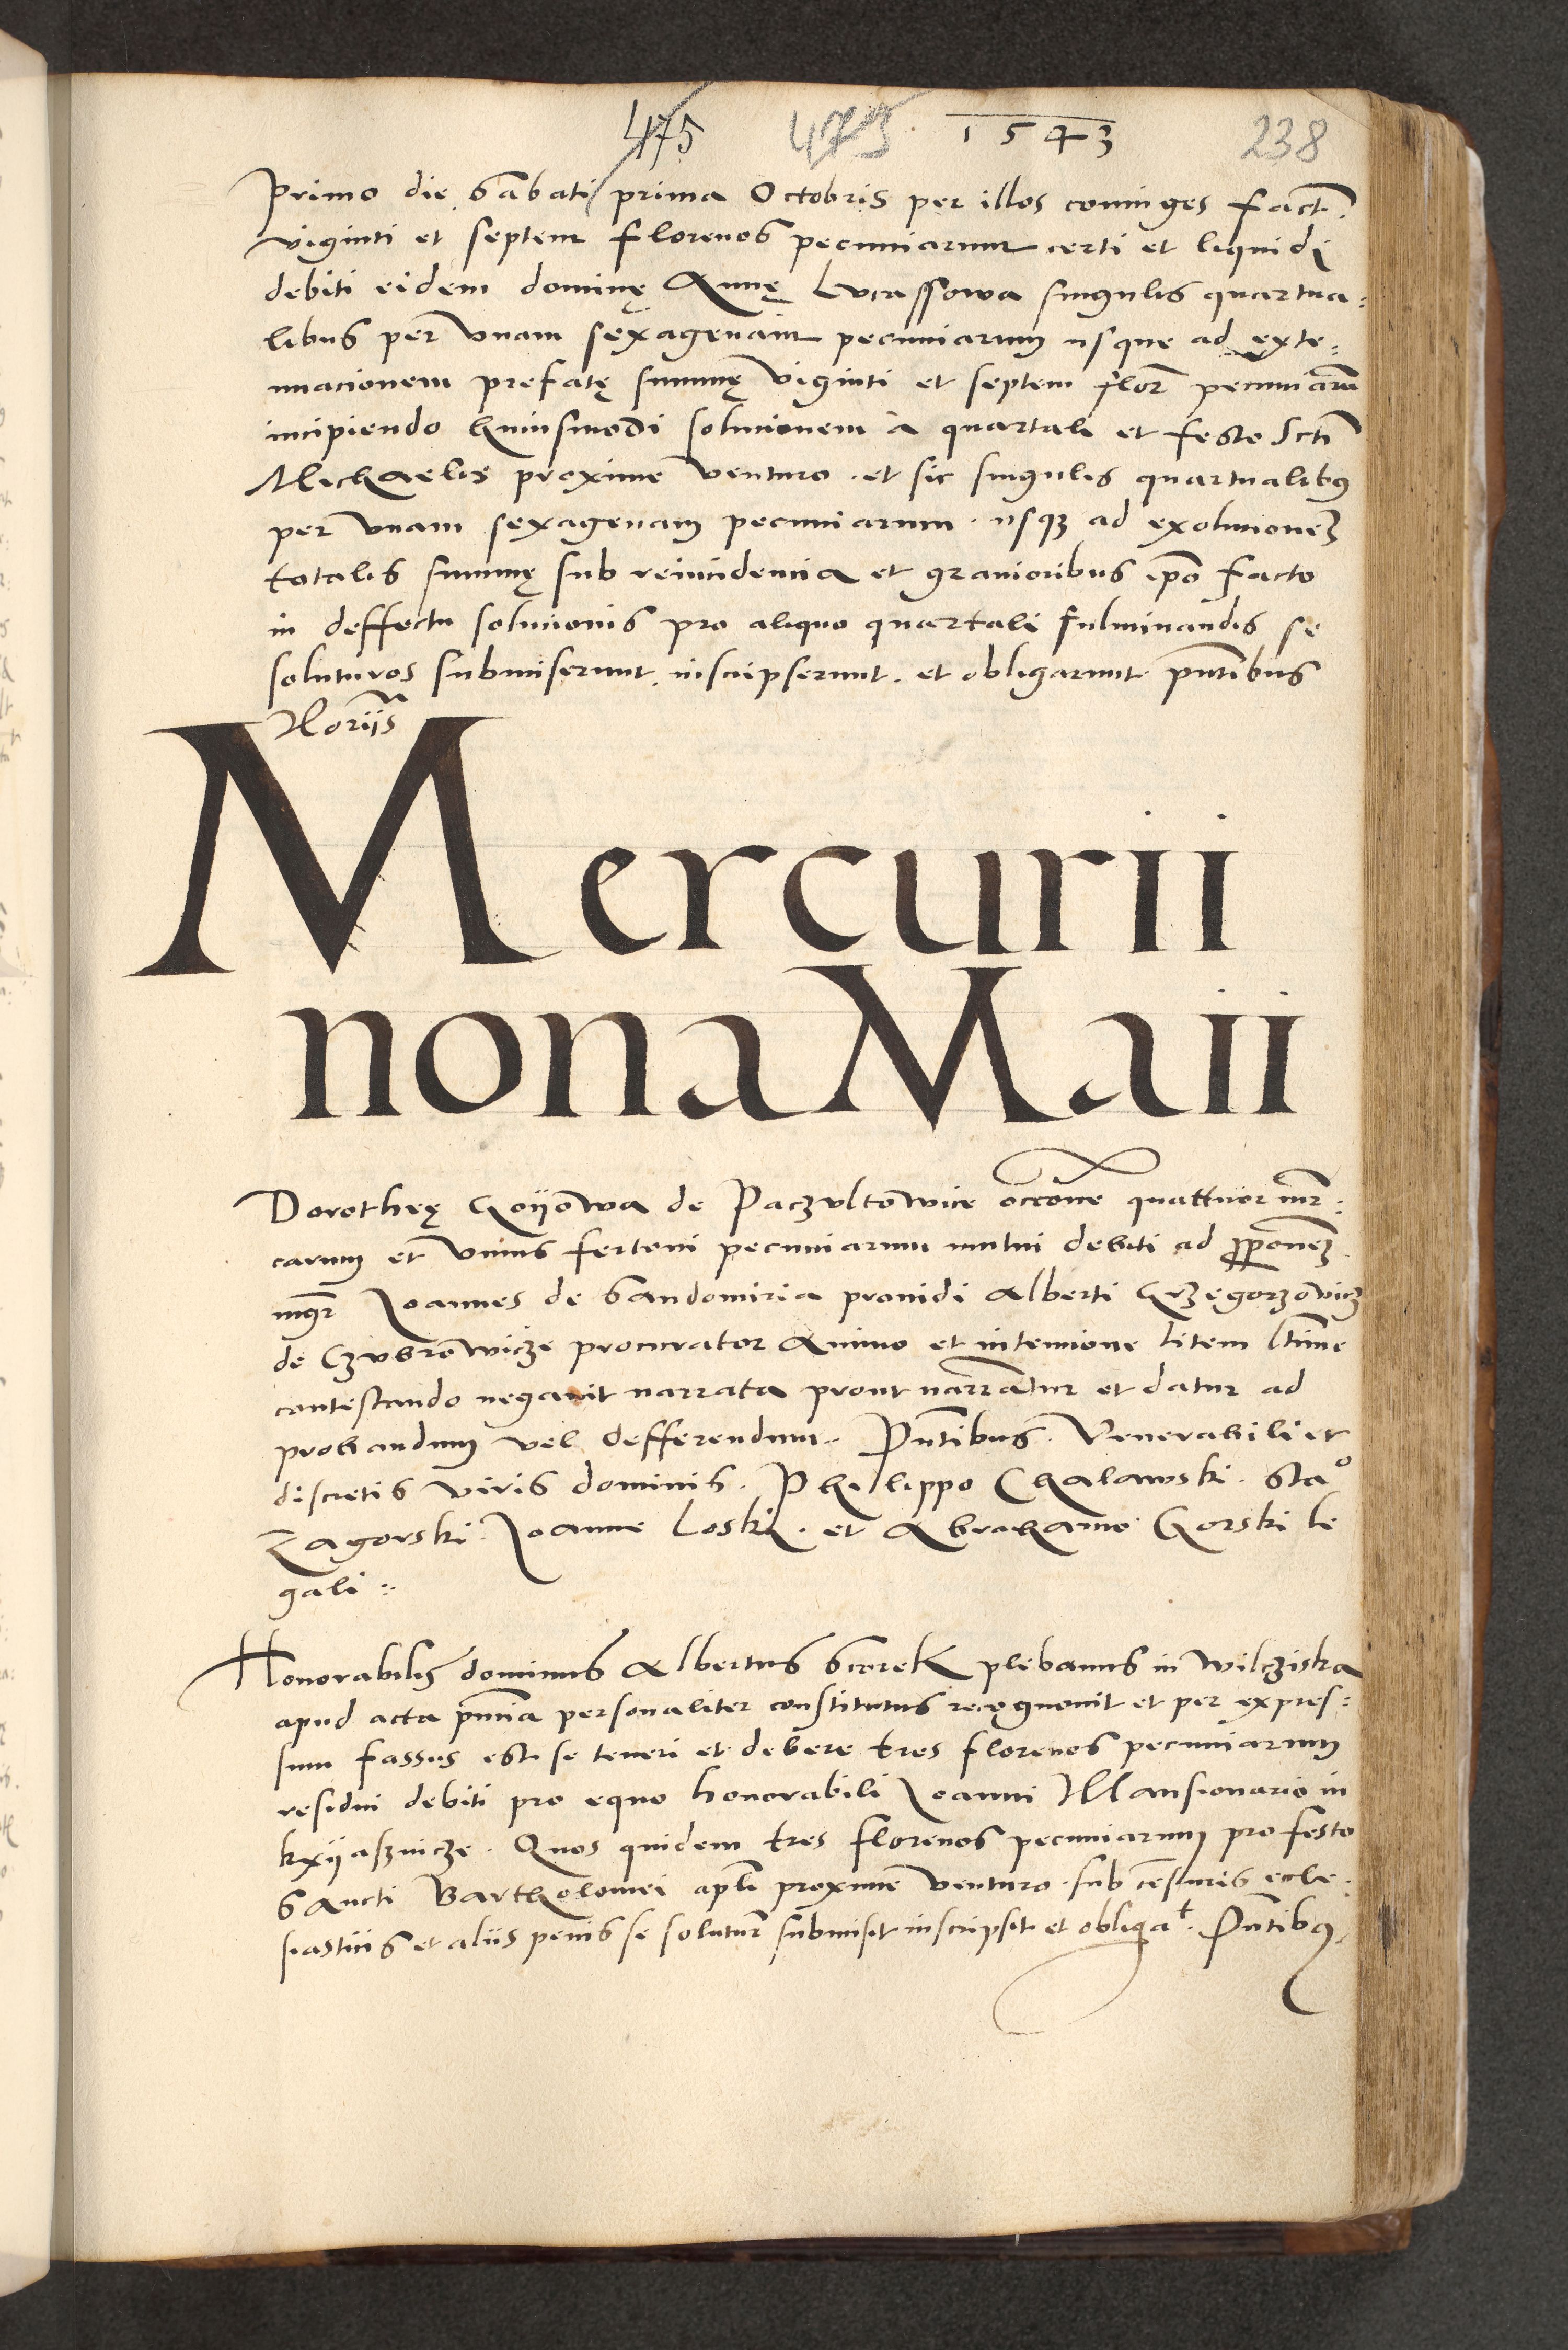 475 473 1543 238
Primo die Sabati prima Octobris per illos coniuges fact̄.
viginti et septem florenos pecuniarum certi et liquidi
debiti eidem dominę Annę Lucassowa singulis quartua-
libus per vnam sexagenam pecuniarum usque ad exte-
nuacionem prefatę summę viginti et septem flor̄ pecuniarū
incipiendo huiusmodi solucionem à quartali et festo Sctī
Michaelis proxime venturo . et sic singulis quartualibꝰ
per vnam sexagenam pecuniarum . usqꝫ ad exolucionem
totalis summę sub reincidencia et grauioribus ipō facto
in deffectu solucionis pro aliquo quartali fulminandis se
soluturos submiserunt . inscripserunt . et obligarunt pn̄tibus
Noriis
Mercurii
nona Maii
Dorotheę Goyowa de Paczultowice occōne quattuor mr̄-
carum et vnius fertoni pecuniarum mutui debiti ad ꝓpōnem
mgr̄ Joannes de Sandomiria prouidi Alberti Grzegorzowicz
de Czubrowicze procurator animo et intencione litem ltīme
contestando negauit narrata prout narrantur et datur ad
probandum vel defferendum . Pn̄tibus . Venerabili et
discretis viris dominis . Philippo Chalawski . Sta°
Zagorski . Joanne Loski . et Abrahamo Gorski le
gali .
Honorabilis dominus Albertus Scorek plebanus in Wilcziska
apud acta pn̄cia personaliter constitutus recognouit et per expres-
sum fassus est se teneri et debere tres florenos pecuniarum
residui debiti pro equo honorabili Joanni Mansionario in
Kxyasznicze . Quos quidem tres florenos pecuniarum pro festo
Sancti Bartholomei apli proxime venturo . sub cēsuris eccle-
siasticis et aliis penis se soluturū submisit inscripsit et obligat . Pn̄tibꝰ